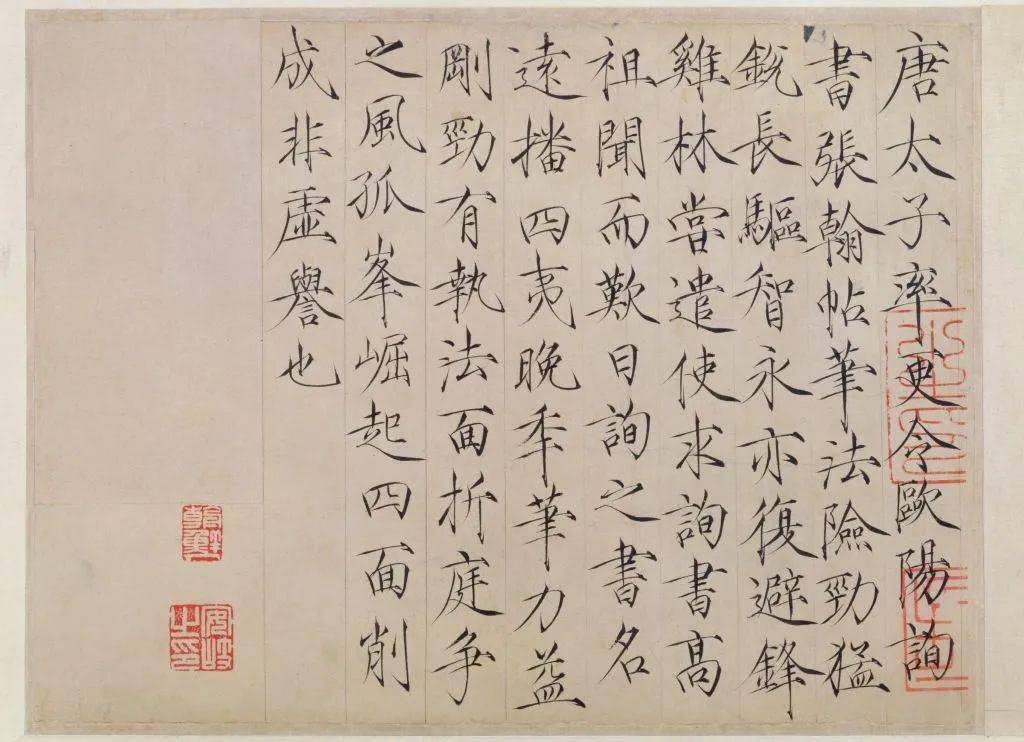 唐太子率更令歐陽詢
書張翰帖筆法險勁猛
銳長驅智永亦復避鋒
雞林嘗遣使求詢書高
祖聞而歎曰詢之書名
遠播四夷晚年筆力益
剛勁有執法面折庭爭
之風孤峯崛起四面削
成非虛譽也
安岐之印